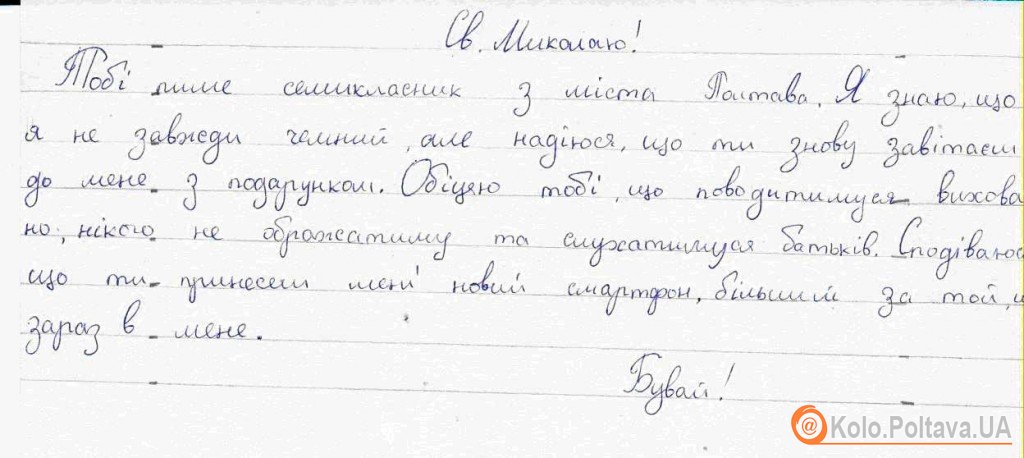 Св. Миколаю!
Тобі пише семикласник з міста Полтава. Я знаю, що
я не завжди чемний, але надіюся, що ти знову завітаєш
до мене з подарунком. Обіцяю тобі, що поводитимуся вихова
но, нікого не ображатиму та слухатимуся батьків. Сподіваюс
що ти принесеш мені новий смартфон, більший за той, щ
зараз в мене.
Бувай!
@Kolo.Poltava.UA